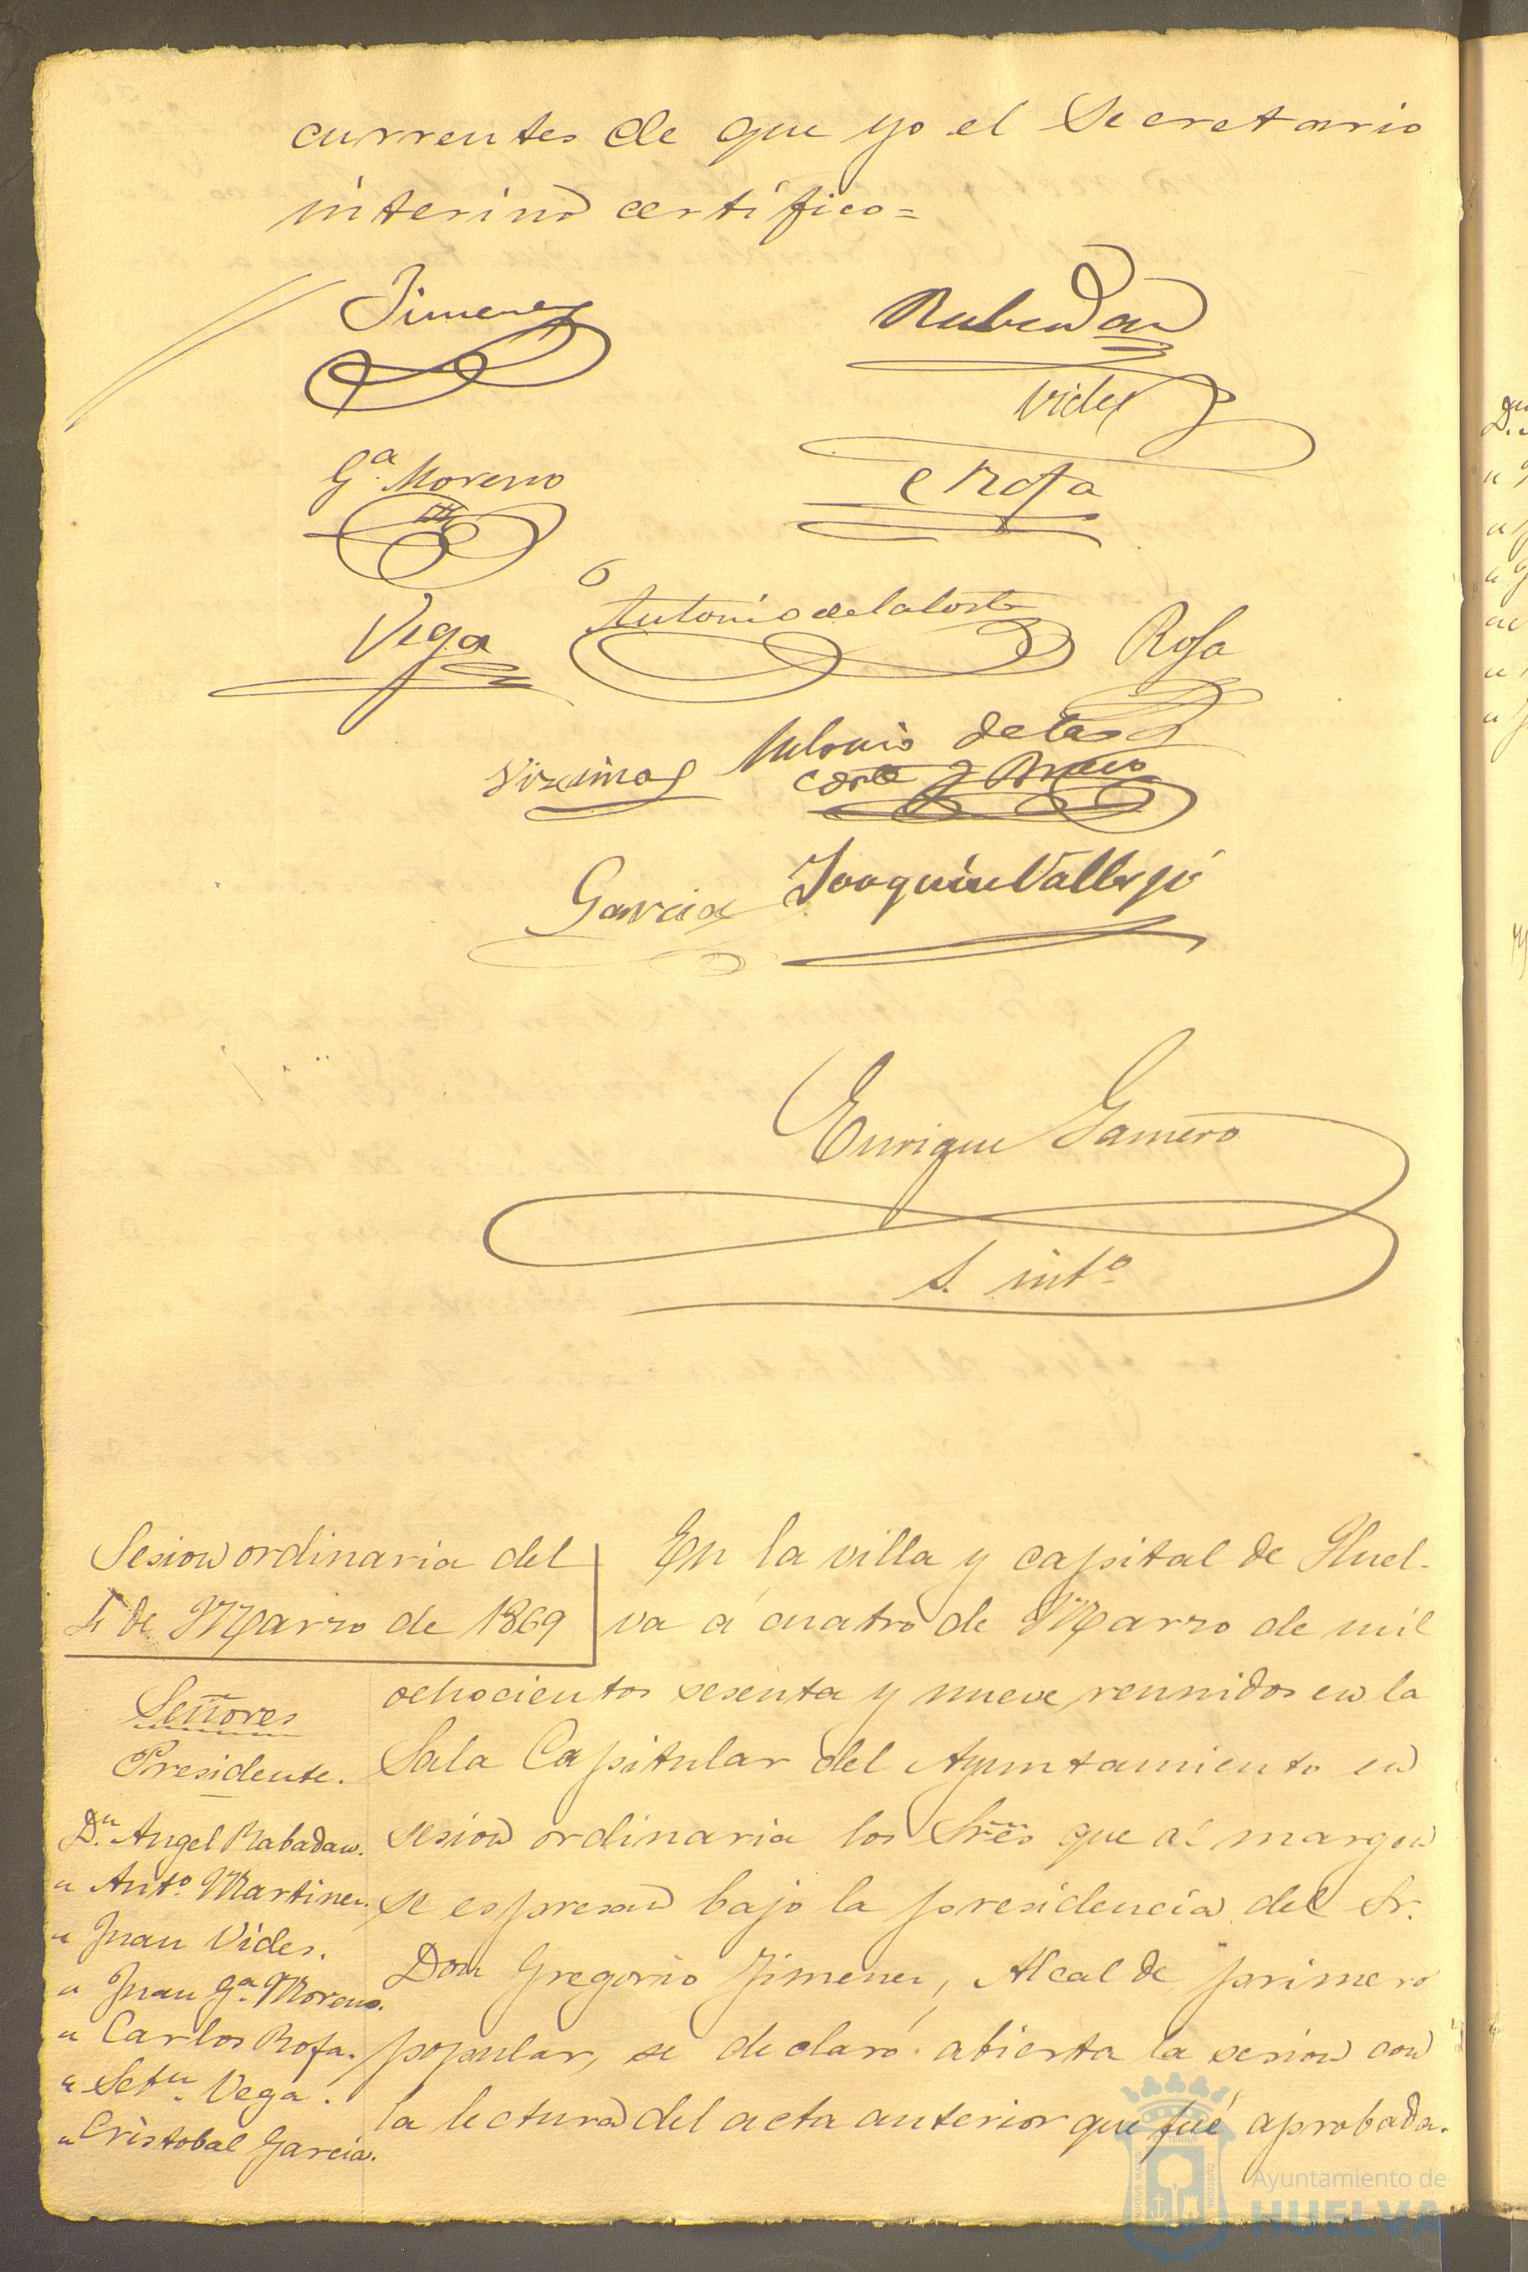 currentes de que yo el Secretario
interino certifico=
Jimenez
Rabadan
Vides
Gª Moreno
C Rofa
Vega
Antonio de la Corte
Rofa
Antonio de la
Corte y Bravo
Garcia
Joaquin Vallejo
Enrique Gamero
S. intº
Sesion ordinaria del
4 de Marzo de 1869
Señores
Presidente.
Dn Angel Rabadan.
" Antº Martinez.
" Juan Vides.
" Juan Gª Moreno.
" Carlos Rofa.
" Setn Vega.
" Cristobal Garcia.
En la villa y capital de Huel-
va á cuatro de Marzo de mil
ochocientos sesenta y nueve reunidos en la
Sala Capitular del Ayuntamiento en
sesion ordinaria los Sres que al margen
se espresan bajo la presidencia del Sr.
Don Gregorio Jimenez, Alcalde primero
popular, se declaró abierta la sesion con
la lectura del acta anterior que fué aprobada.
Ayuntamiento de
HUELVA